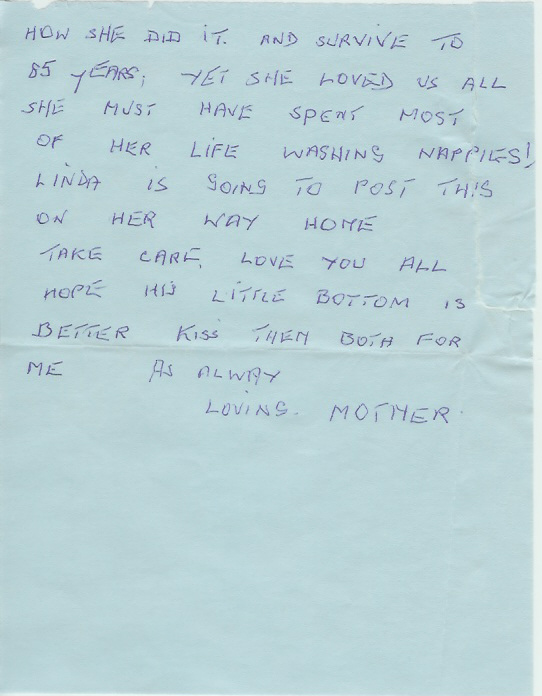 HOW SHE DID IT. AND SURVIVE TO
85 YEARS; YET SHE LOVED US ALL
SHE MUST HAVE SPENT MOST
OF HER LIFE WASHING NAPPIES!
LINDA IS GOING TO POST THIS
ON HER WAY HOME
TAKE CARE, LOVE YOU ALL
HOPE HIS LITTLE BOTTOM IS
BETTER KISS THEM BOTH FOR
ME AS ALWAY
LOVING. MOTHER.